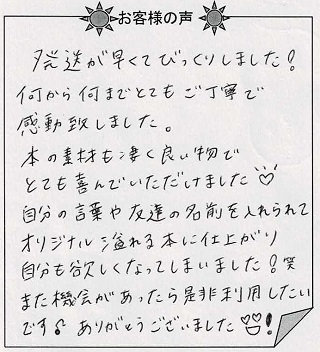 お客様の声
発送が早くてびっくりしました！
何から何までとてもご丁寧で
感動致しました。
本の素材も凄く良い物で
とても喜んでいただけました♡
自分の言葉や友達の名前を入れられて
オリジナル溢れる本に仕上がり
自分も欲しくなってしまいました！笑
また機会があったら是非利用したい
です♪ ありがとうございました！